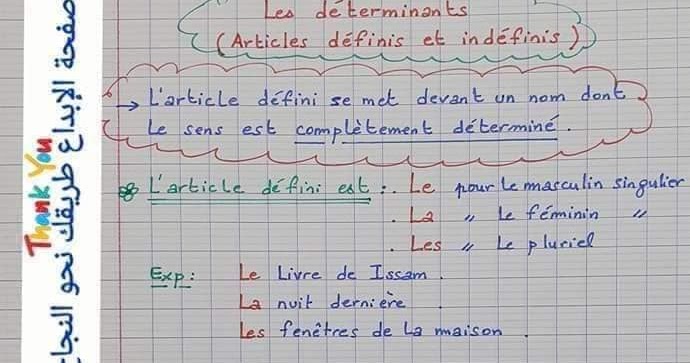 Les déterminants
(Articles définis et indéfinis)
→ L'article défini se met devant un nom dont
Le sens est complètement déterminé.
L'article défini est : . Le pour Le masculin singulier
. La " Le féminin "
. Les " Le pluriel
Exp : Le Livre de Issam.
La nuit dernière.
Les fenêtres de La maison.
Thank You
صفحة الإبداع طريقك نحو النجا